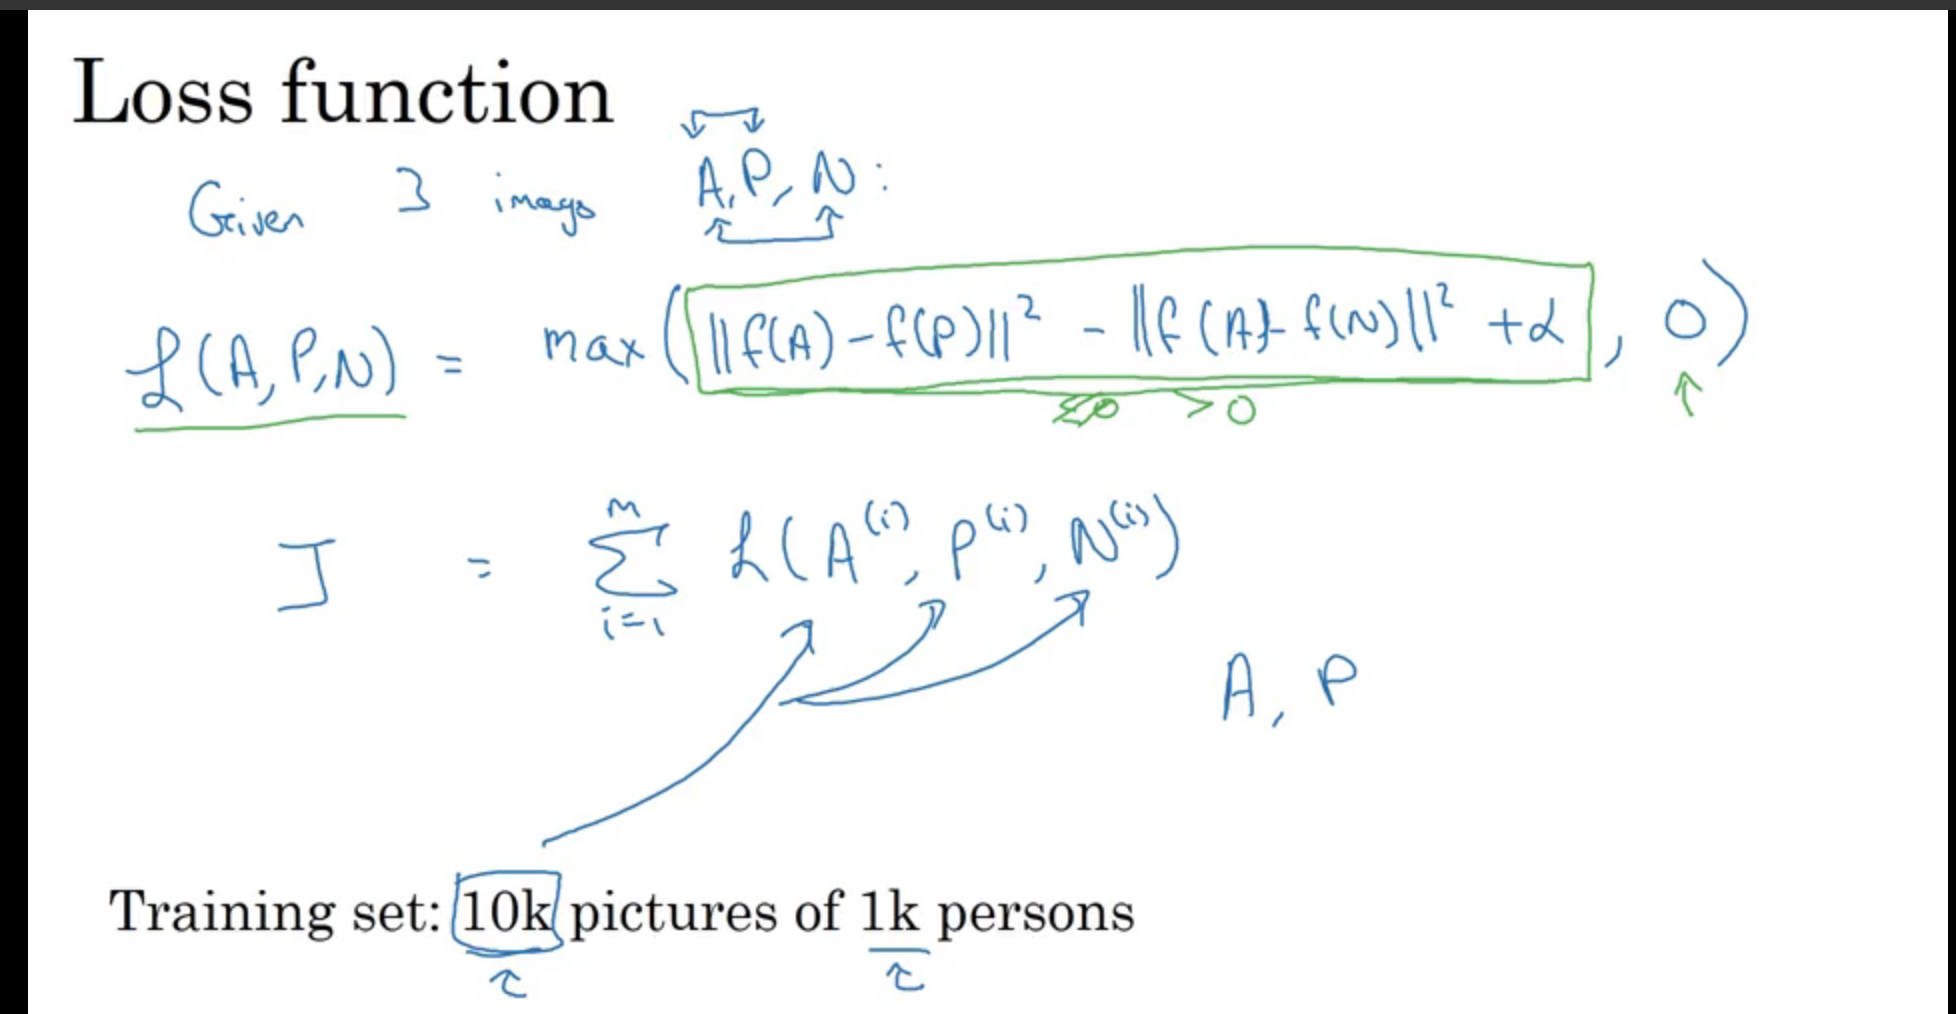 Loss function
Given 3 images A, P, N :
ℒ(A, P, N) = max(‖f(A) - f(P)‖² - ‖f(A) - f(N)‖² + α, 0)
> 0 ↑
J = Σ_{i=1}^{M} ℒ(A⁽ⁱ⁾, P⁽ⁱ⁾, N⁽ⁱ⁾)
A, P
Training set: 10k pictures of 1k persons